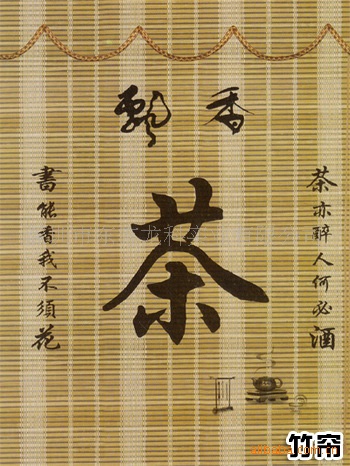 飄香
茶亦醉人何必酒
茶
書能香我不須花
竹帘